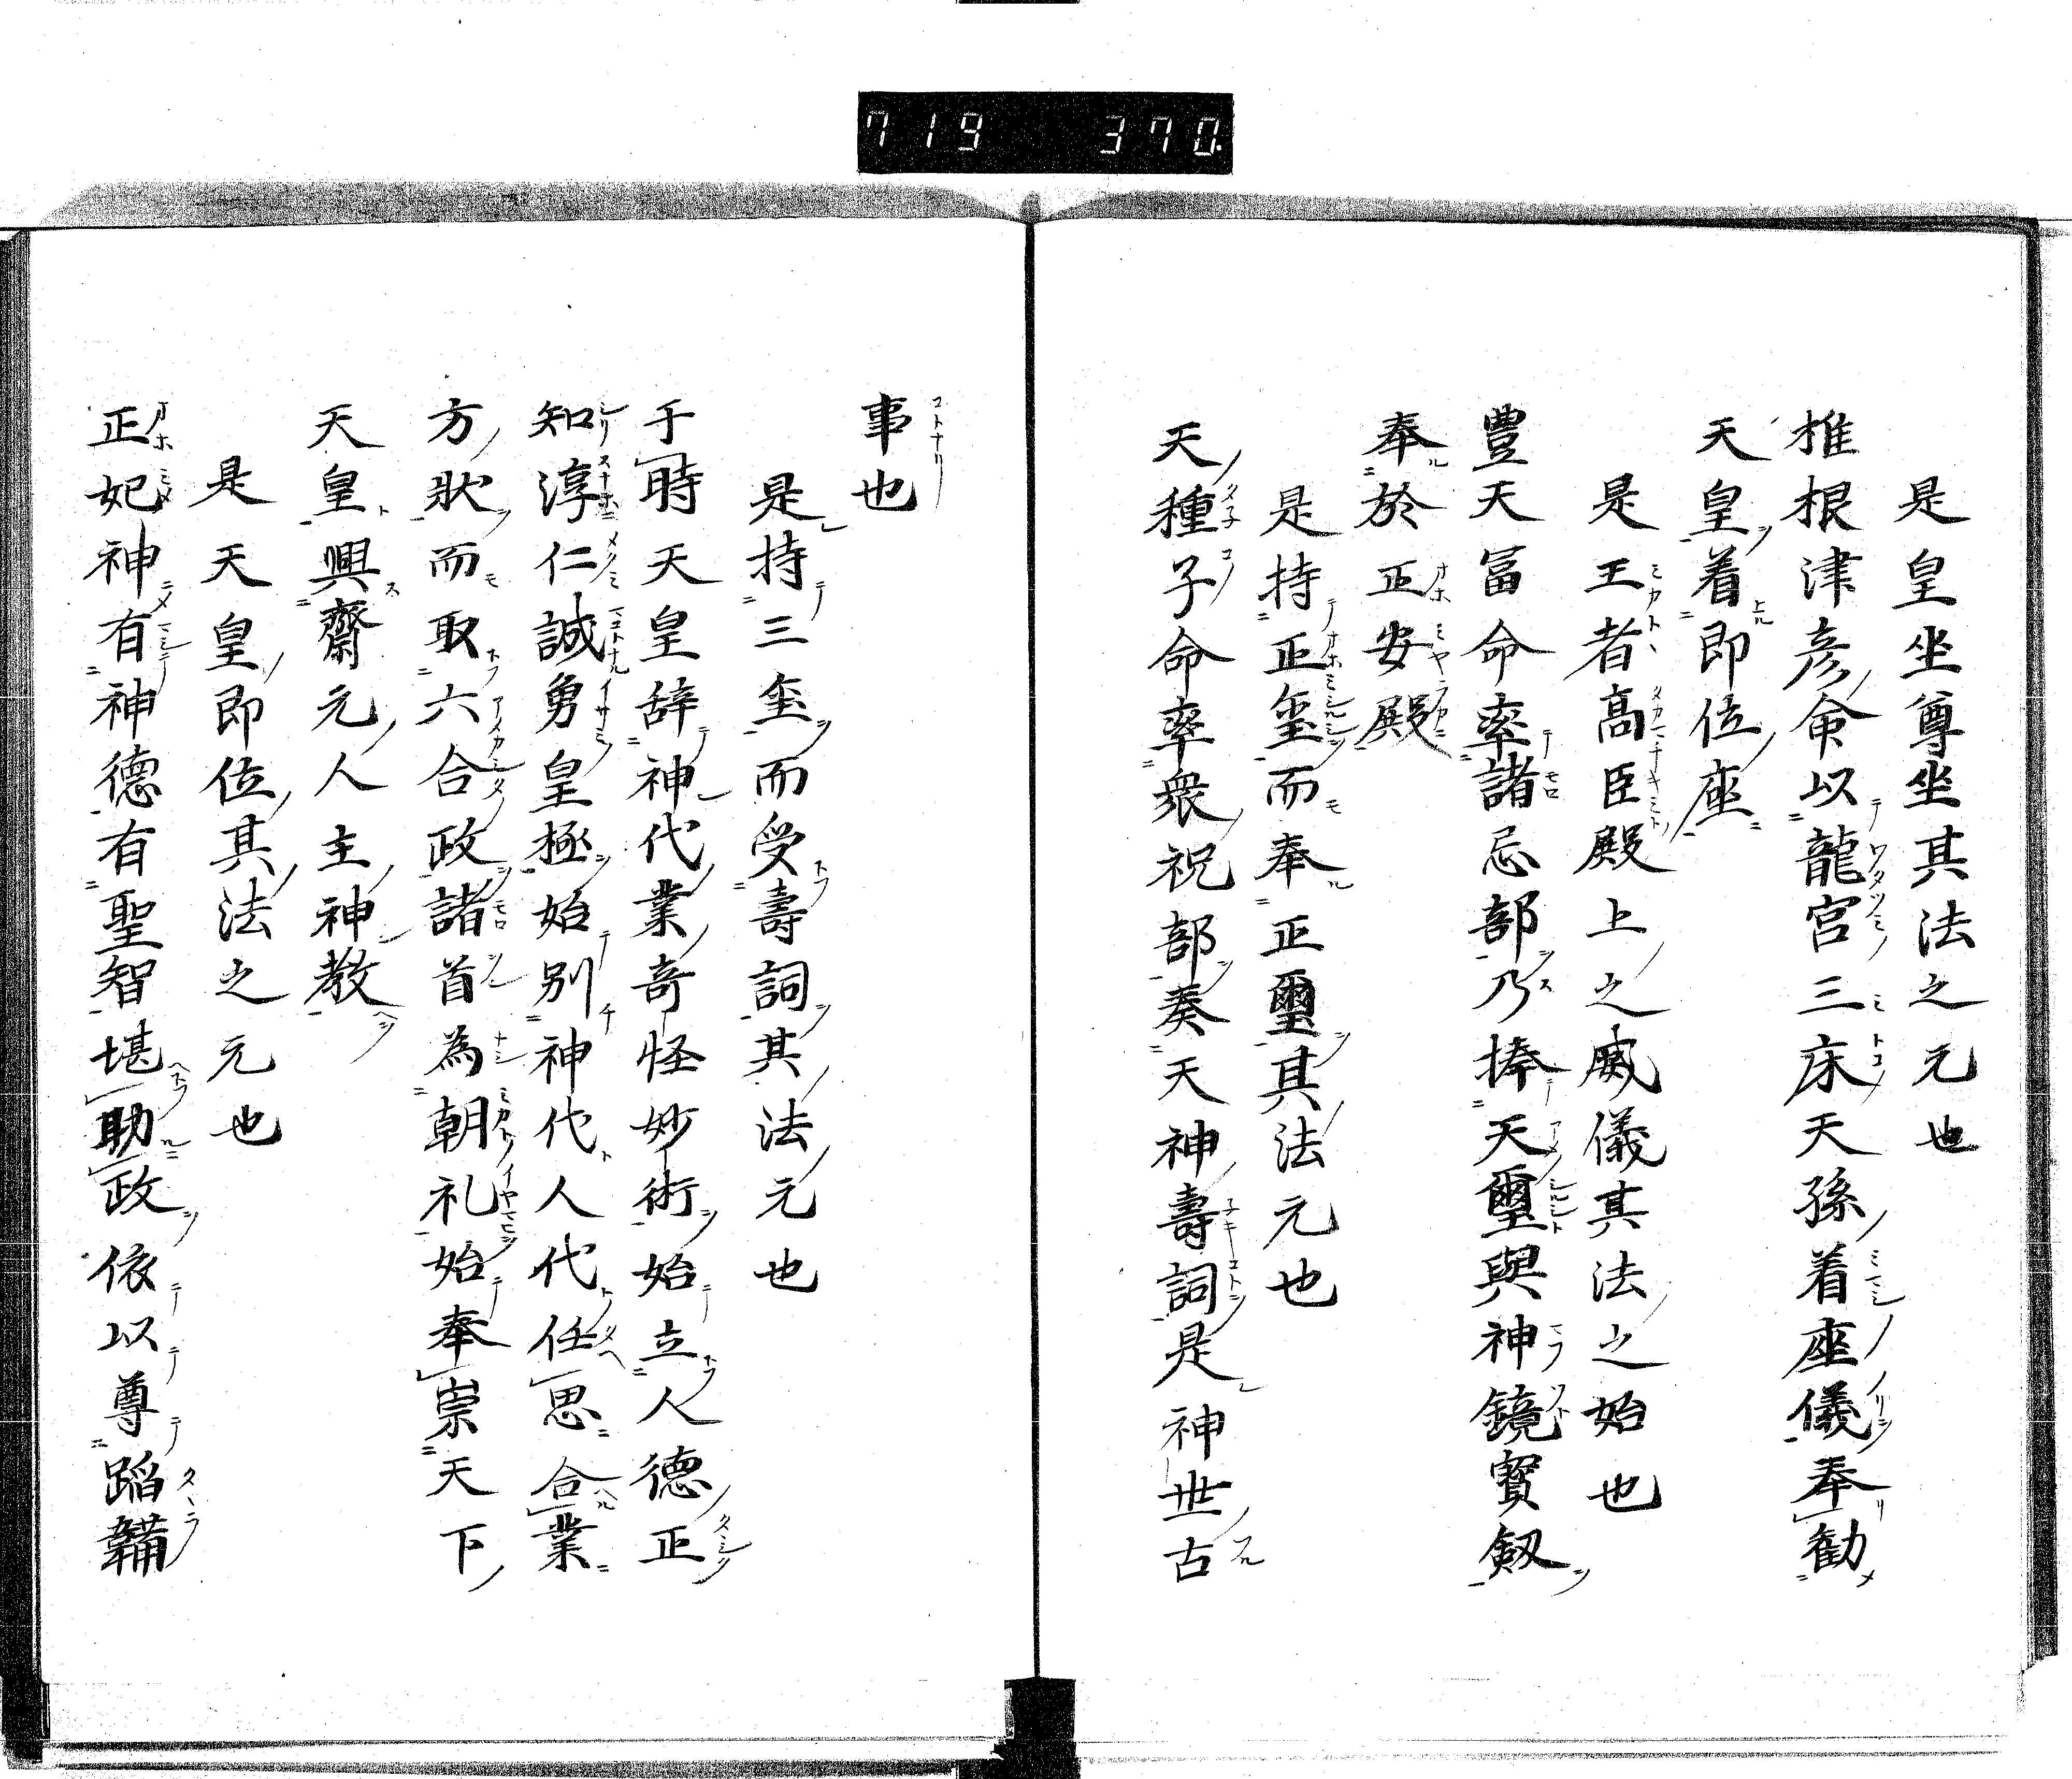 719 370
是皇坐尊坐其法之元也
推根津彦命以龍宮三床天孫着座儀奉勧
天皇着即位座
是王者高臣殿上之威儀其法之始也
豊天冨命率諸忌部乃捧天璽與神鏡寳劔
奉於正安殿
是持正璽而奉正璽其法元也
天種子命率衆祝部奏天神壽詞是神世古
事也
是持三璽而受壽詞其法元也
于時天皇辞神代業竒怪妙術始立人德正
知淳仁誠勇皇極始別神代人代任思合業
方状而取六合政諸首為朝礼始奉崇天下
天皇興齋元人主神教
是天皇即位其法之元也
正妃神有神德有聖智堪助政依以尊蹈鞴